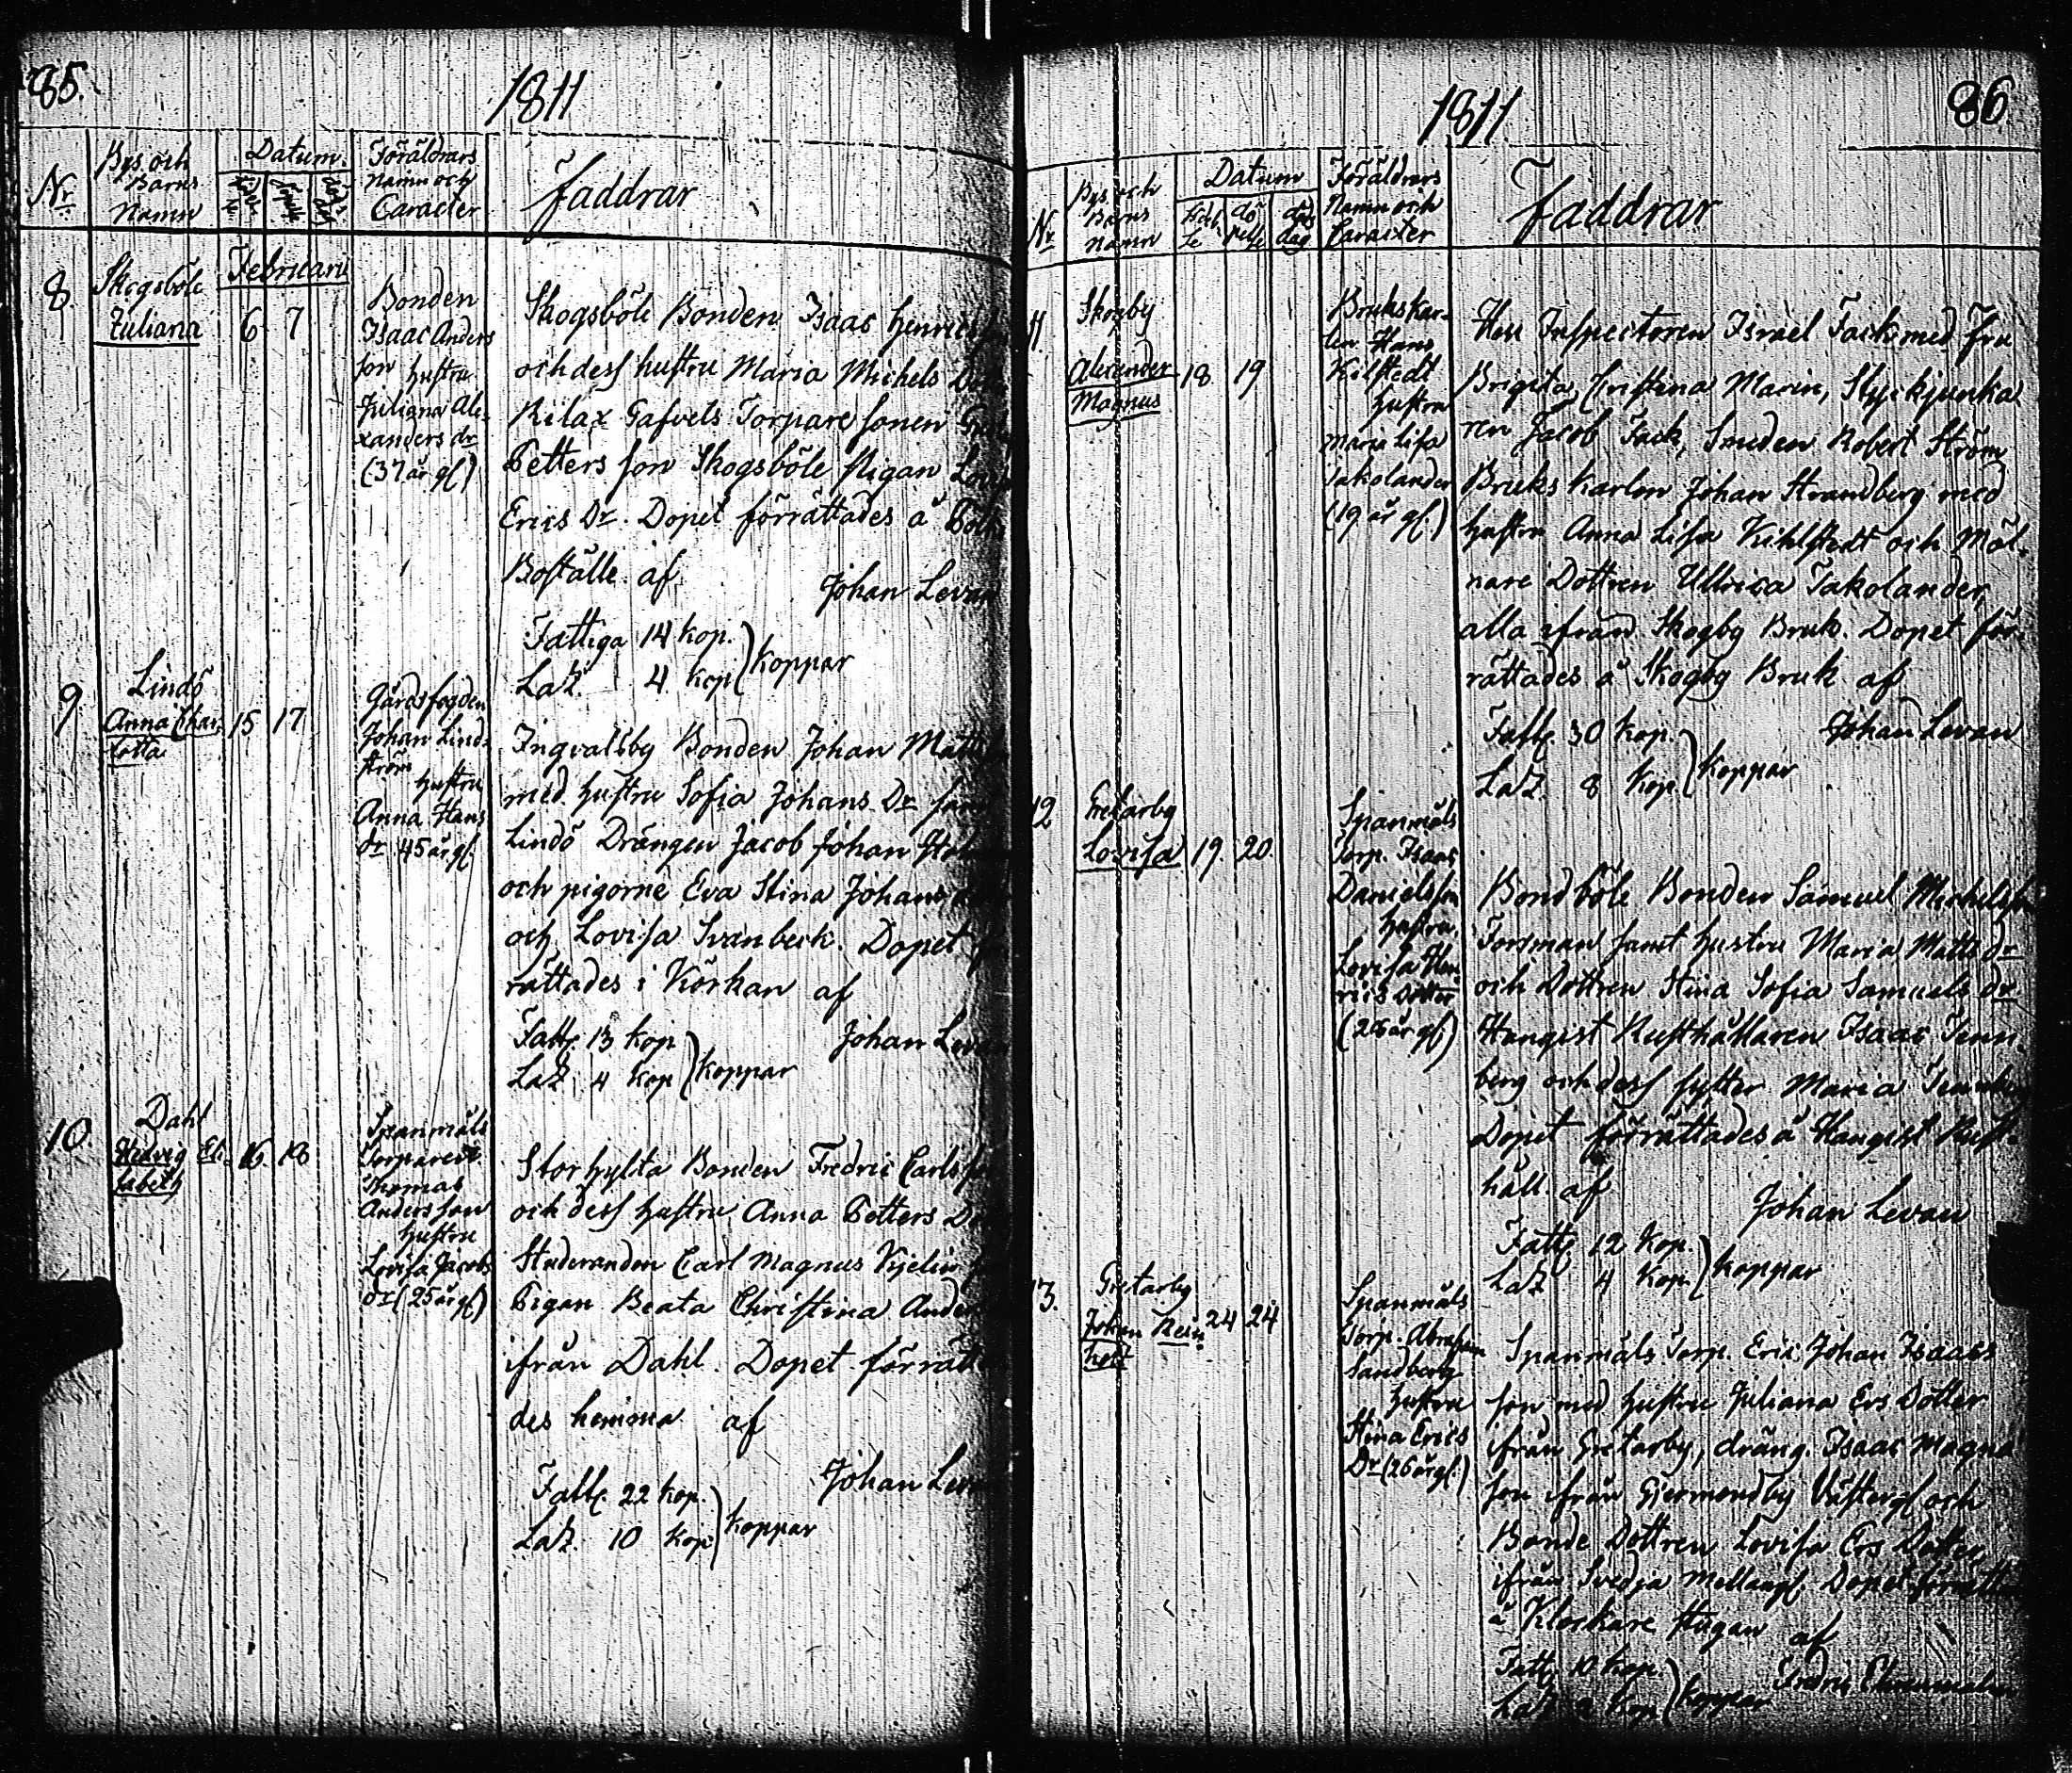 85.
1811
Nr.
Bys och
Barns
Namn
Datum
Föräldrars
Namn och
Caracter
Faddrar
Februari
8.
Skogsböle
Juliana
6
7
Bonden
Isaac Anders
son hustru
Juliana Ale-
xanders dr
(37 år gl)
Skogsböle Bonden Isaac Henrics
och dess hustru Maria Michels
Rilax Gafvels Torpare sonen
Petters son Skogsböle Pigan
Erics Dr. Dopet förrättades å
Boställe af
Johan Levan
Fattiga 14 kop.
LaZ. 4 kop
Koppar
9.
Lindö
Anna Char-
lotta
15
17
Gårdsfogden
Johan Lind-
ström
hustru
Anna Hans
dr 45 år gl
Ingvalsby Bonden Johan Matts
med hustru Sofia Johans Dr
Lindö Drängen Jacob Johan
och pigorne Eva Stina Johans
och Lovisa Svanbeck. Dopet
rättades i Körkan af
Fatt. 13 kop
Johan Levan
LaZ 4 kop
koppar
10.
Dahl
Hedvig Eli-
sabeth
16.
18
Spanmåls
Torparen
Thomas
Anders son
hustru
Lovisa Jacobs
dr (25 år gl)
Storhylta Bonden Fredric Carls
och dess hustru Anna Petters
Studeranden Carl Magnus Kjelin
Pigan Beata Christina
ifrån Dahl. Dopet förrätta
des hemma af
Johan Levan
Fatt. 22 kop.
LaZ. 10 kop
koppar
1811
86
Nr
Bys och
Barns
namn
Datum
född-
te
dö
pelse
döds
dag
Föräldrars
Namn och
Caracter
Faddrar
11.
Skogby
Alexander
Magnus
18
19
Brukskar-
len Hans
Kilstedt
hustru
Maria Lisa
Takolander
(19 år gl.)
Herr Inspectoren Israel Fack med Fru
Brigita Cristina Marin, Styckjunka
ren Jacob Fack, Smeden Robert Ström
Bruks Karlen Johan Strandberg med
hustru Anna Lisa Kihlstedt och Möl-
nare Dottren Ullrica Takolander,
alla ifrån Skogby Bruk. Dopet för-
rättades å Skogby Bruk af
Fatt. 30 kop.
Johan Levan
LaZ 8 kop
koppar
12
Gretarby
Lovisa
19.
20.
Spanmåls
Torp. Isaac
Danielsson
hustru
Lovisa Hen-
rics Dotter
(26 år gl)
Bondböle Bonden Samuel Michelsson
Forsman samt hustru Maria Matts dr
och Dottren Stina Sofia Samuels dr
Hangist Rusthållaren Isaac Tenn-
berg och dess syster Maria
Dopet förrättades å Hangist Rust-
håll af
Johan Levan
Fatt. 12 kop.
LaZ 4 kop.
koppar
13.
Gretarby
Johan Rein-
holt
24
24
Spanmåls
Torp. Abraham
Sandberg
hustru
Stina Erics
Dr (26 år gl.)
Spanmåls Torp. Eric Johan Isaacs
son med hustru Juliana Ers Dotter
ifrån Gretarby, dräng. Isaac Magnus
son ifrån Gjermundby Västergl och
Bonde Dottren Lovisa Ers Dotter,
ifrån Svedja Mellangl. Dopet
å Klockare Stugan af
Fatt. 10 kop.
LaZ 2 kop
koppar